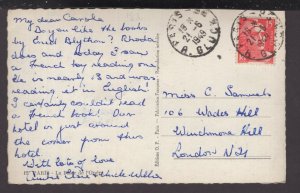 My dear Carole
Do you like the books
by Enid Blyton? Rhoda
does and today I saw
a French boy reading one
He is nearly 13 and was
reading it in English!
I certainly couldn't read
a French book! Our
hotel is just around
the corner from this
hotel.
With lots of love
Auntie Elsie
Miss C. Samuels
106 Wades Hill
Winchmore Hill
London N21